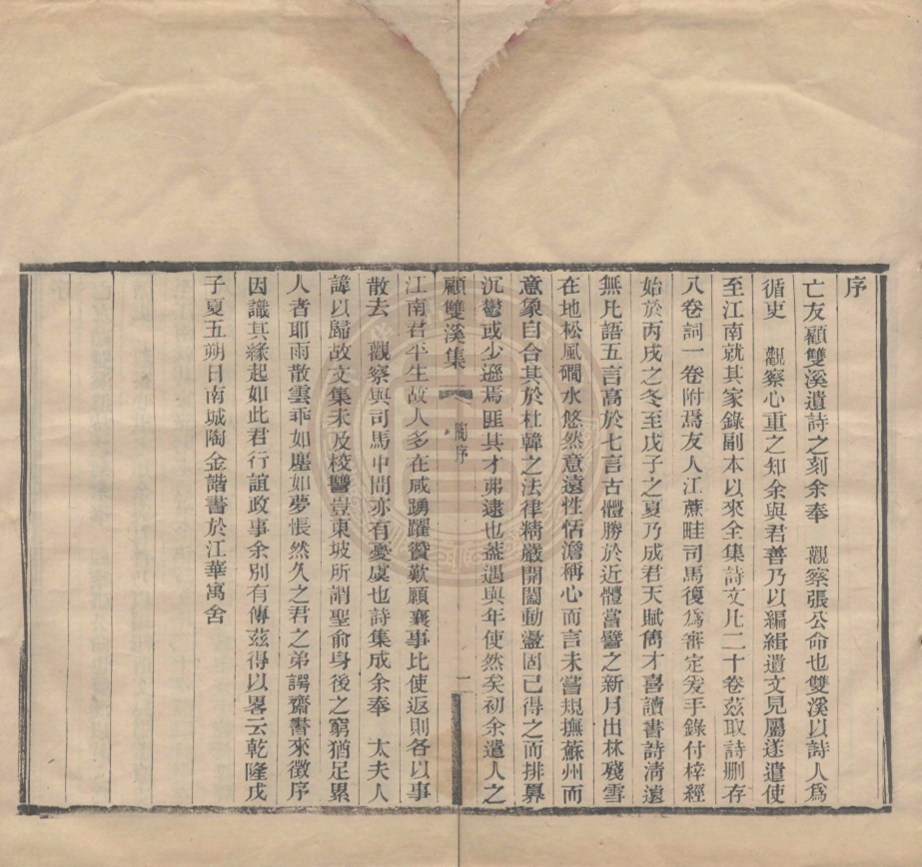 序
亡友顧雙溪遺詩之刻余奉　觀察張公命也雙溪以詩人爲
循吏　觀察心重之知余與君善乃以編緝遺文見屬遂遣使
至江南就其家錄副本以來全集詩文凡二十卷茲取詩刪存
八卷詞一卷附焉友人江蔗畦司馬復爲審定爰手錄付梓經
始於丙戌之冬至戊子之夏乃成君天賦雋才喜讀書詩淸遠
無凡語五言高於七言古體勝於近體嘗譬之新月出林殘雪
在地松風磵水悠然意遠性恬澹稱心而言未嘗規撫蘇州而
意象自合其於杜韓之法律精嚴開闔動盪固已得之而排奡
沉鬱或少遜焉匪其才弗逮也葢遇與年使然矣初余遣人之
顧雙溪集　陶序　二
江南君平生故人多在咸踴躍贊歎願襄事比使返則各以事
散去　觀察與司馬中間亦有憂虞也詩集成余奉　太夫人
諱以歸故文集未及校讐豈東坡所謂聖俞身後之窮猶足累
人者耶雨散雲乖如塵如夢悵然久之君之弟諤齋書來徵序
因識其緣起如此君行誼政事余別有傳茲得以畧云乾隆戊
子夏五朔日南城陶金諧書於江華寓舍